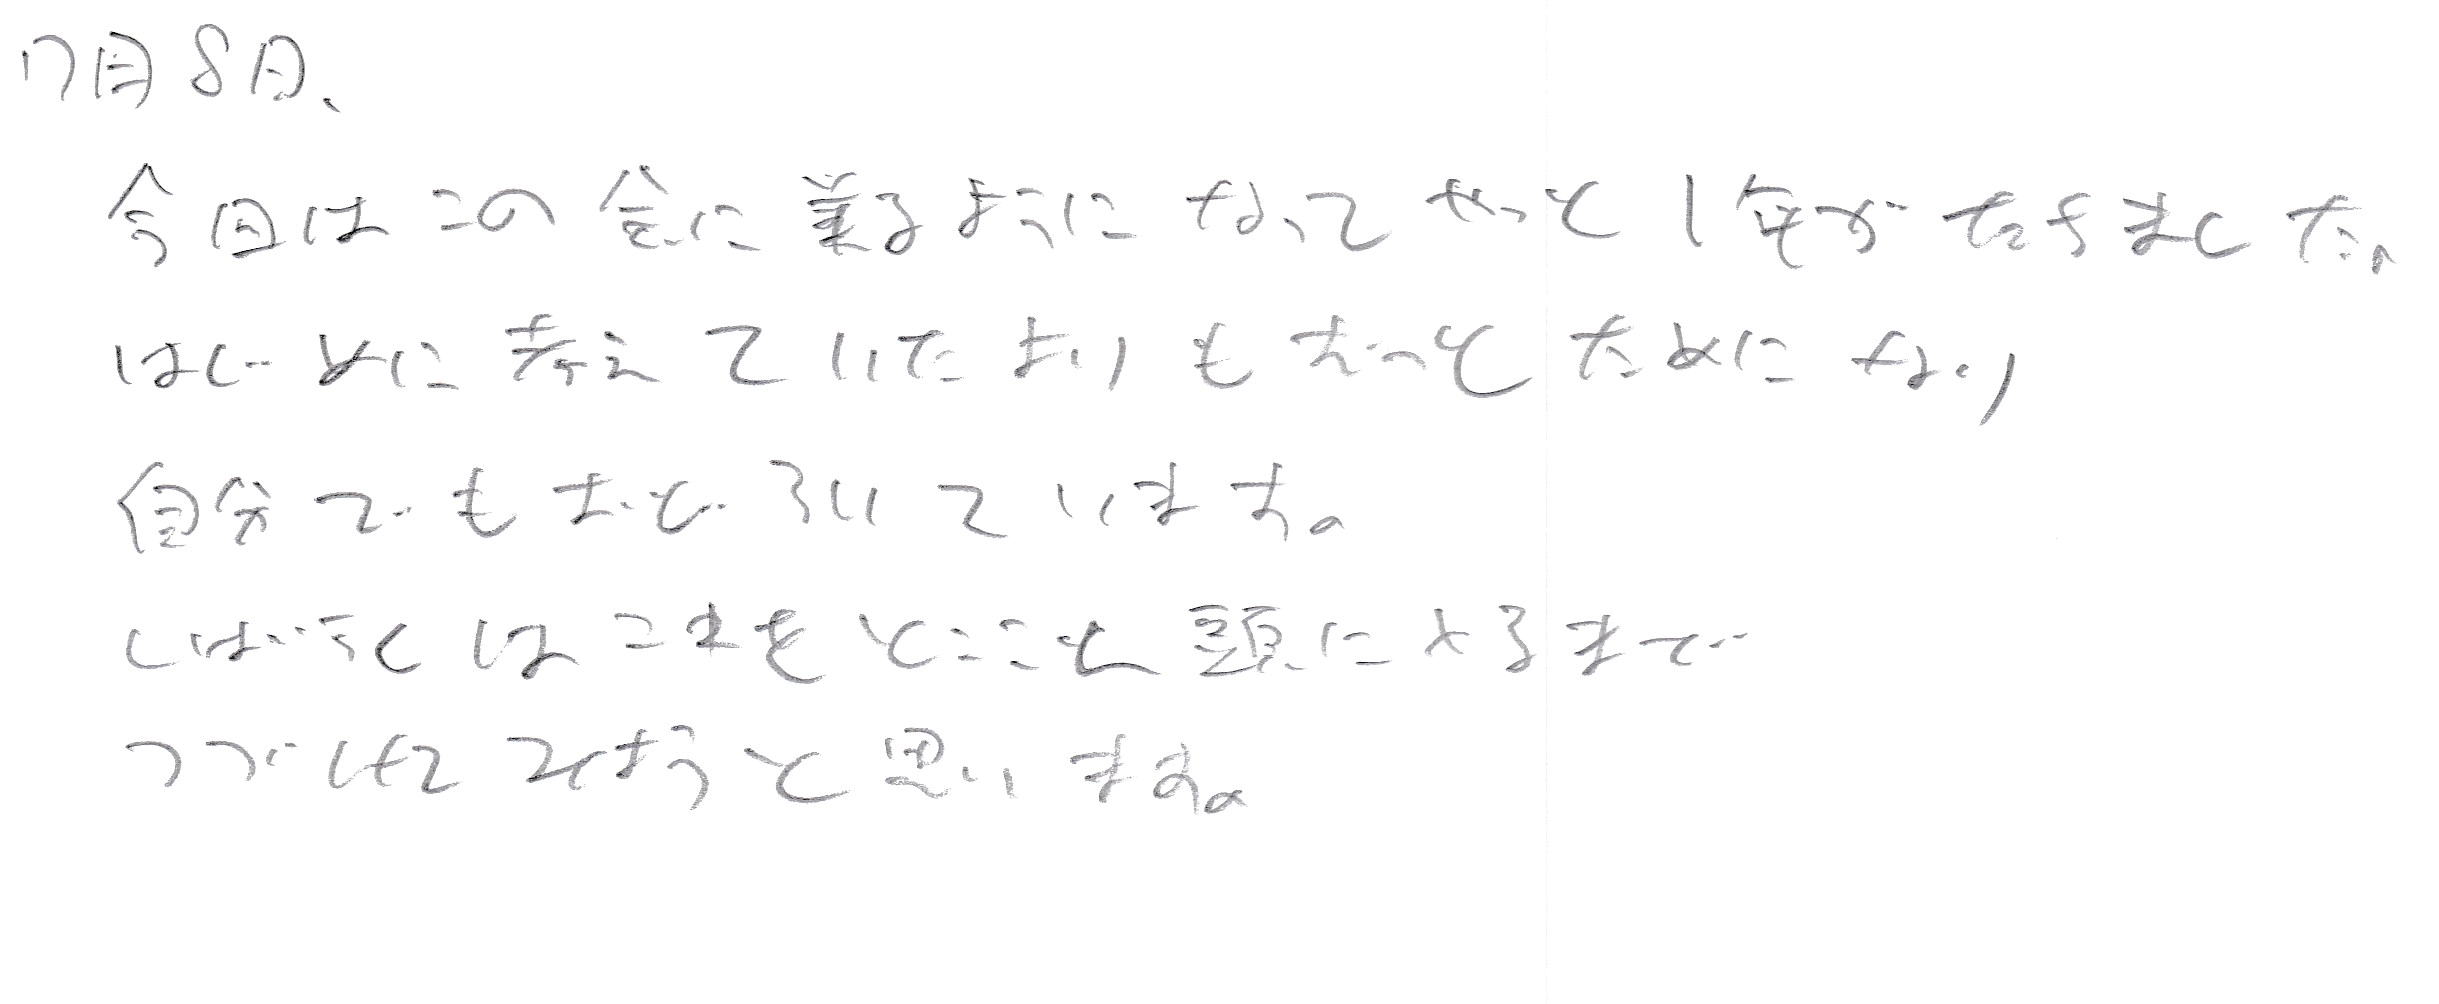 7月8日、
今回はこの会に来るようになってやっと1年がたちました。
はじめに考えていたよりもずっとためになり
自分でもおどろいています。
しばらくはこれをとことん頭に入るまで
つづけてみようと思います。